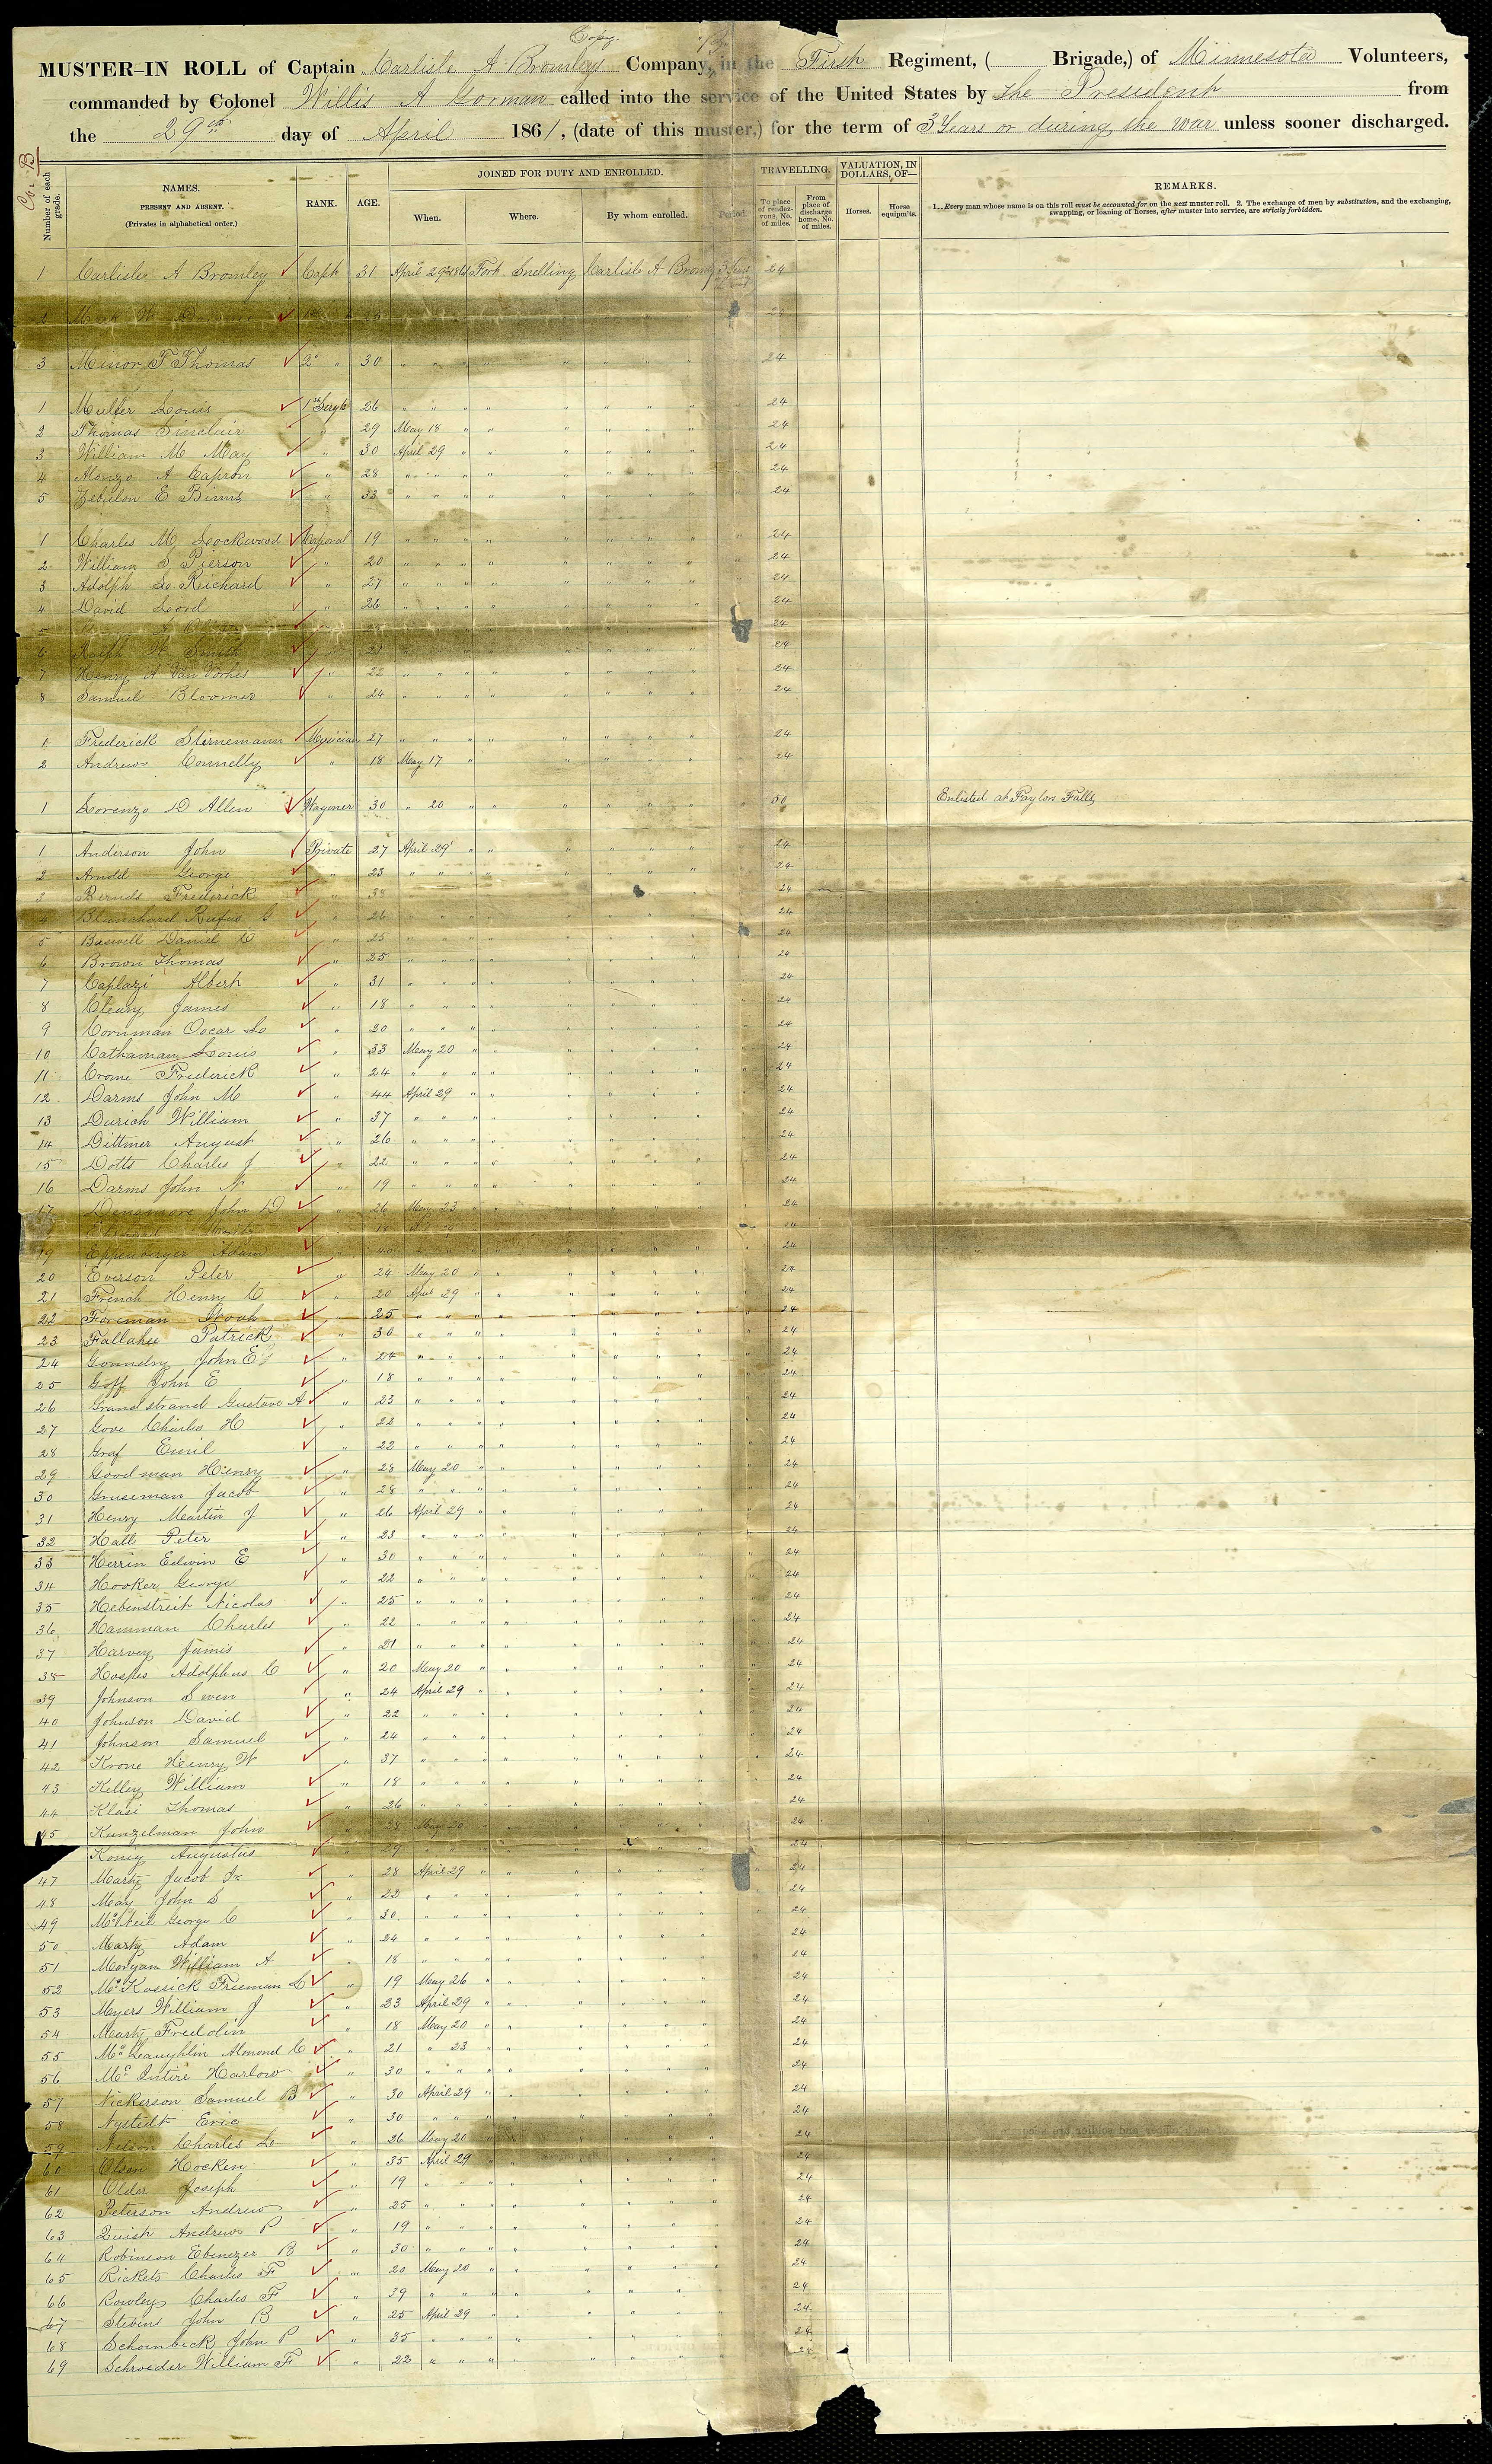 Copy
"B"
MUSTER-IN ROLL of Captain Carlisle A Bromley Company, in the First Regiment, ( Brigade,) of Minnesota Volunteers,
commanded by Colonel Willis A Gorman called into the service of the United States by The President from
the 29th day of April 1861, (date of this muster,) for the term of 3 Years or during the war unless sooner discharged.
Co. B
Number of each grade.
NAMES.
PRESENT AND ABSENT.
(Privates in alphabetical order.)
RANK.
AGE.
JOINED FOR DUTY AND ENROLLED.
When.
Where.
By whom enrolled.
Period.
TRAVELLING.
To place of rendezvous, No. of miles.
From place of discharge home, No. of miles.
VALUATION, IN DOLLARS, OF—
Horses.
Horse equipm'ts.
REMARKS.
1. Every man whose name is on this roll must be accounted for on the next muster roll. 2. The exchange of men by substitution, and the exchanging,
swapping, or loaning of horses, after muster into service, are strictly forbidden.
1 Carlisle A Bromley Capt 31 April 29 1861 Fort Snelling Carlisle A Brom 3 Years 24
2 Mark W 24
3 Minor F Thomas 2d " 30 " " " " " " " 24
1 Muller Louis 1st Sergt 26 " " " " " " " 24
2 Thomas Sinclair " 29 May 18 " " " " " 24
3 William M May " 30 April 29 " " " " " 24
4 Alonzo A Capron " 28 " " " " " " " 24
5 Zebulon E Binns " 33 " " " " " " " 24
1 Charles M Lockwood Corporal 19 " " " " " " " 24
2 William S Pierson " 20 " " " " " " " 24
3 Adolph L Reichard " 27 " " " " " " " 24
4 David Lord " 26 " " " " " " " 24
5 25 24
6 Ralph W Smith " 23 " " " " " " " 24
7 Henry A Van Vorhes " 22 " " " " " " " 24
8 Samuel Bloomer " 24 " " " " " " " 24
1 Frederick Stirnemann Musician 27 " " " " " " " 24
2 Andrew Connelly " 18 May 17 " " " " 24
1 Lorenzo D Allen Wagoner 30 " 20 " " " " " 50 Enlisted at Taylors Falls
1 Anderson John Private 27 April 29 " " " " " 24
2 Arnold George " 23 " " " " " " " 24
3 Bernds Frederick " 38 " " " " " " 24
4 Blanchard Rufus G " 26 " " " " " " 24
5 Baswell Daniel C " 25 " " " " " " 24
6 Brown Thomas " 25 " " " " " " " 24
7 Caplazi Albert " 31 " " " " " " " 24
8 Cleary James " 18 " " " " " " " 24
9 Cornman Oscar L " 20 " " " " " " " 24
10 Cathaman Louis " 33 May 20 " " " " " 24
11 Crome Frederick " 24 " " " " " " " 24
12 Darms John M " 44 April 29 " " " " " 24
13 Durich William " 37 " " " " " " " 24
14 Dittmer August " 26 " " " " " " " 24
15 Dotts Charles J " 22 " " " " " " " 24
16 Darms John N " 19 " " " " " " " 24
17 Densmore John D " 26 May 23 " " " " 24
18 24
19 Eppenberger Adam " 40 " " " " " " 24
20 Everson Peter " 24 May 20 " " " " " 24
21 French Henry C " 20 April 29 " " " " " 24
22 Foreman " 25 " " " " " " " 24
23 Fallahee Patrick " 30 " " " " " " " 24
24 Goundry John E " 24 " " " " " " " 24
25 Goff John E " 18 " " " " " " " 24
26 Grandstrand Gustave A " 23 " " " " " " " 24
27 Gove Charles H " 22 " " " " " " " 24
28 Graf Emil " 22 " " " " " " " 24
29 Goodman Henry " 28 May 20 " " " " " 24
30 Gruseman Jacob " 28 " " " " " " " 24
31 Henry Martin J " 26 April 29 " " " " " 24
32 Hall Peter " 23 " " " " " " " 24
33 Herrin Edwin E " 30 " " " " " " " 24
34 Hooker George " 22 " " " " " " " 24
35 Hebenstreit Nicolas " 25 " " " " " " " 24
36 Hamman Charles " 22 " " " " " " " 24
37 Harvey James " 21 " " " " " " " 24
38 Hospes Adolphus C " 20 May 20 " " " " " 24
39 Johnson Swen " 24 April 29 " " " " " 24
40 Johnson David " 22 " " " " " " " 24
41 Johnson Samuel " 24 " " " " " " " 24
42 Krone Henry W " 37 " " " " " " " 24
43 Kelley William " 18 " " " " " " " 24
44 Klasi Thomas " 26 " " " " " " " 24
45 Kunzelman John " 28 May 20 " " " " " 24
Konig Augustus " 29 " " " " " " " 24
47 Marty Jacob Jr " 28 April 29 " " " " " 24
48 May John S " 22 " " " " " " " 24
49 McNeil George C " 30 " " " " " " " 24
50 Marty Adam " 24 " " " " " " " 24
51 Morgan William A " 18 " " " " " " " 24
52 McKussick Freeman L " 19 May 26 " " " " " 24
53 Myers William J " 23 April 29 " " " " " 24
54 Marty Fredolin " 18 May 20 " " " " " 24
55 McLaughlin Almond C " 21 " 23 " " " " " 24
56 McIntire Harlow " 30 " " " " " " " 24
57 Nickerson Samuel B " 30 April 29 " " " " " 24
58 Nystedt Eric " 30 " " " " " " " 24
59 Nelson Charles L " 26 May 20 " " " " 24
60 Olsen Hocken " 35 April 29 " " " " 24
61 Older Joseph " 19 " " " " " " " 24
62 Peterson Andrew " 25 " " " " " " " 24
63 Quish Andrew P " 19 " " " " " " " 24
64 Robinson Ebenezer B " 30 " " " " " " " 24
65 Rickets Charles F " 20 May 20 " " " " " 24
66 Rowley Charles F " 39 " " " " " " " 24
67 Stevens John B " 25 April 29 " " " " " 24
68 Schoenbeck John P " 35 " " " " " " " 24
69 Schroeder William F " 22 " " " " " " " 24